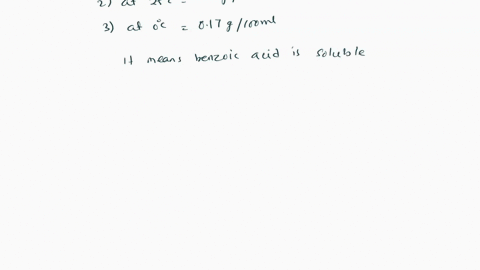 2) at
3) at 0°c = 0.17 g/100ml
It means benzoic acid is soluble